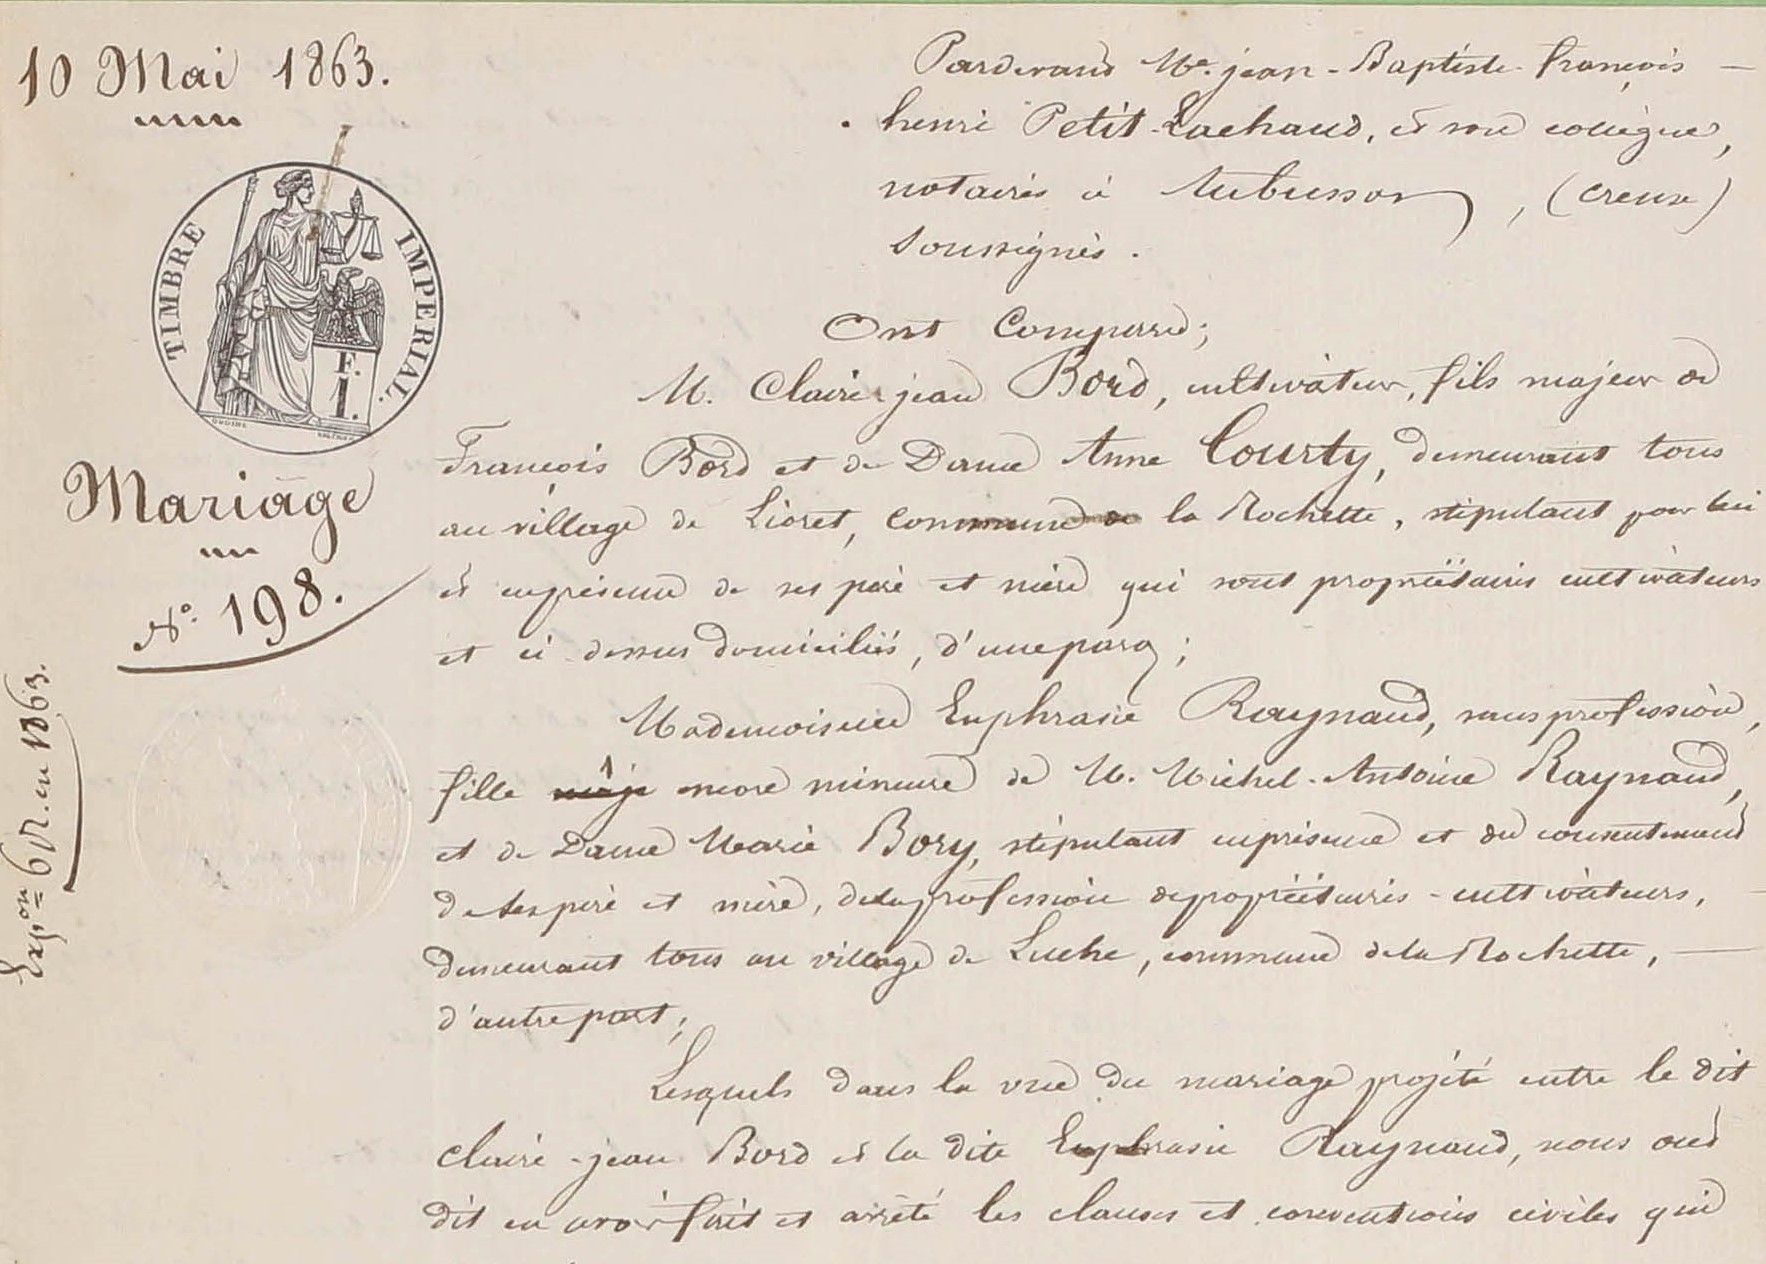 10 Mai 1863.
TIMBRE IMPERIAL.
F.
1.
Mariage
N.º 198.
Exp.on = 6 r. en 1863.
Pardevant Me. jean-Baptiste-françois
henri Petit-Lachaud, et son collègue,
notaires à Aubusson, (creuse)
soussignés.
Ont Comparu;
M. Clair-jean Bord, cultivateur, fils majeur de
François Bord et de Dame Anne Courty, demeurant tous
au village de Lioret, commune de la Rochette, stipulant pour lui
et en présence de ses père et mère qui sont propriétaires cultivateurs
et ci-dessus domiciliés, d'une part;
Mademoiselle Euphrasie Raynaud, sans profession,
fille maje more mineure de M. Michel-Antoine Raynaud,
et de Dame Marie Bory, stipulant en présence et du consentement
de ses père et mère, de la profession de propriétaires-cultivateurs,
demeurant tous au village de Luche, commune de la Rochette,
d'autre part;
Lesquels dans la vue du mariage projeté entre le dit
Claire-jean Bord et la dite Euphrasie Raynaud, nous ont
dit en avoir fait et arrêté les clauses et conventions civiles qui